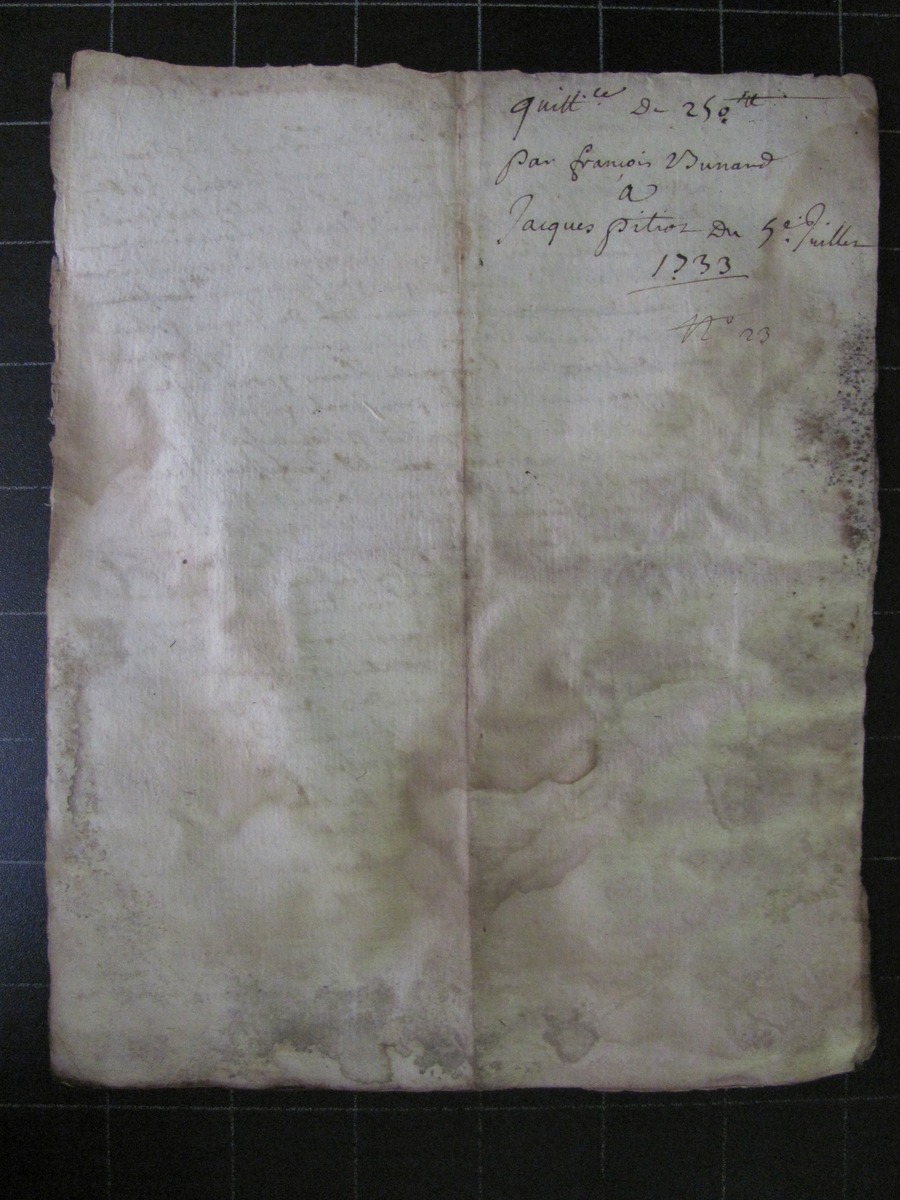 quitt.ce De 250.tt
par françois Bunard
a
Jacques pitiot Du 5.e Juillet
1733
No 23